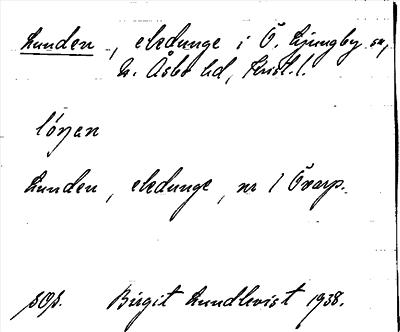 Lunden, ekdunge i Ö. Ljungby sn,
N. Åsbo hd, Krist. l.
Lunden, ekdunge, nr 1 Övarp.
Birgit Lundkvist 1938.